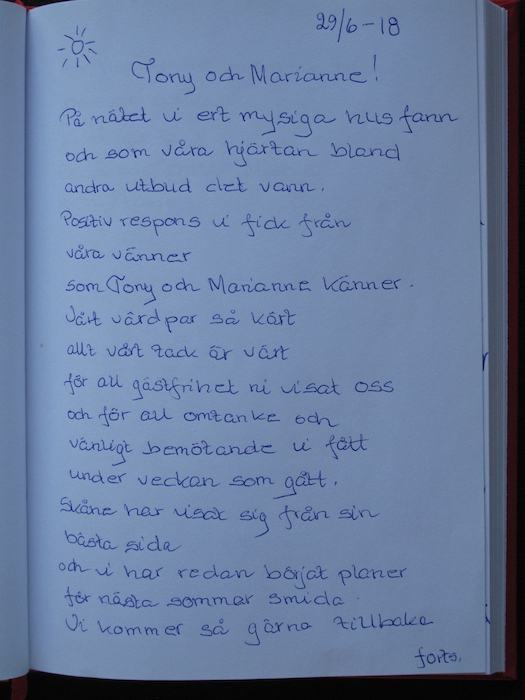 29/6-18
Tony och Marianne!
På nätet vi ert mysiga hus fann
och som våra hjärtan bland
andra utbud det vann.
Positiv respons vi fick från
våra vänner
som Tony och Marianne känner.
Vårt värdpar så kärt
allt vårt tack är värt
för all gästfrihet ni visat oss
och för all omtanke och
vänligt bemötande vi fått
under veckan som gått.
Skåne har visat sig från sin
bästa sida
och vi har redan börjat planer
för nästa sommar smida.
Vi kommer så gärna tillbaka
forts.